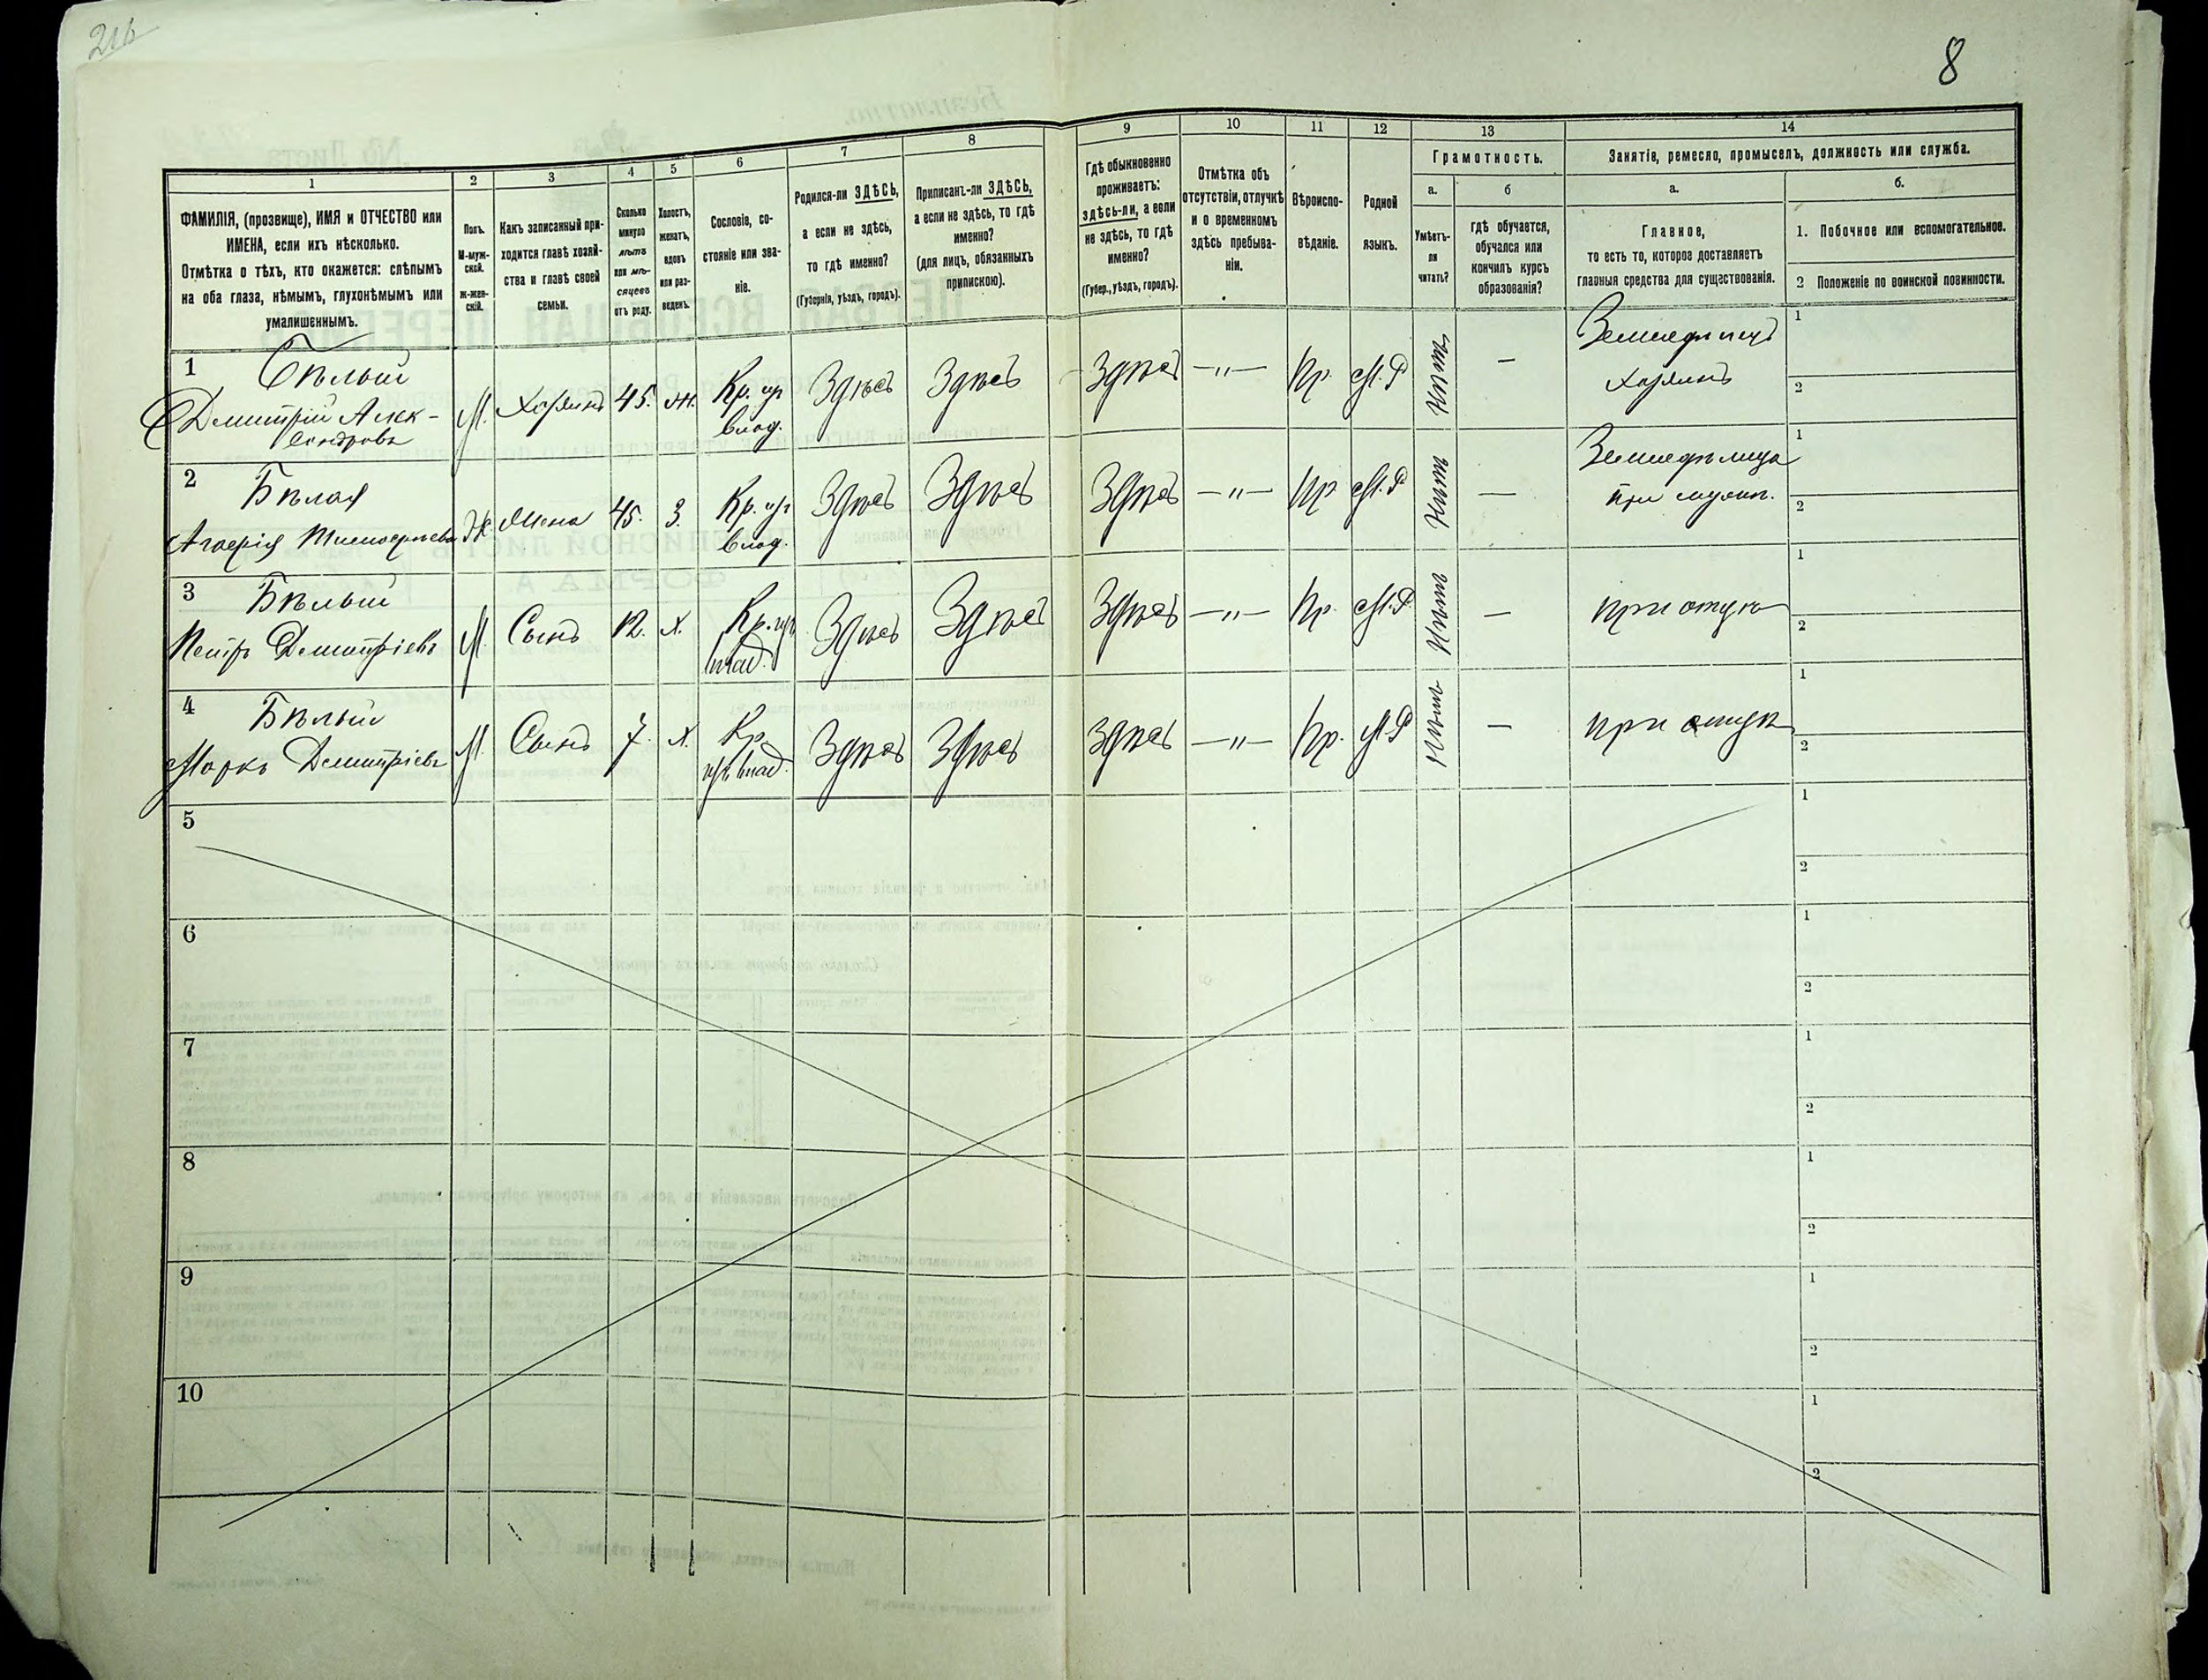 216
8
1
2
3
4
5
6
7
8
9
10
11
12
13
14
ФАМИЛІЯ, (прозвище), ИМЯ и ОТЧЕСТВО или
ИМЕНА, если ихъ нѣсколько.
Отмѣтка о тѣхъ, кто окажется: слѣпымъ
на оба глаза, нѣмымъ, глухонѣмымъ или
умалишеннымъ.
Полъ.
М-муж-
ской.
Ж-жен-
скій.
Какъ записанный при-
ходится главѣ хозяй-
ства и главѣ своей
семьи.
Сколько
минуло
лѣтъ
или мѣ-
сяцевъ
отъ роду.
Холостъ,
женатъ,
вдовъ
или раз-
веденъ.
Сословіе, со-
стояніе или зва-
ніе.
Родился-ли ЗДѢСЬ,
а если не здѣсь,
то гдѣ именно?
(Губернія, уѣздъ, городъ).
Приписанъ-ли ЗДѢСЬ,
а если не здѣсь, то гдѣ
именно?
(для лицъ, обязанныхъ
припискою).
Гдѣ обыкновенно
проживаетъ:
здѣсь-ли, а если
не здѣсь, то гдѣ
именно?
(Губер., уѣздъ, городъ).
Отмѣтка объ
отсутствіи, отлучкѣ
и о временномъ
здѣсь пребыва-
ніи.
Вѣроиспо-
вѣданіе.
Родной
языкъ.
Грамотность.
а.
Умѣетъ-
ли
читать?
б
гдѣ обучается,
обучался или
кончилъ курсъ
образованія?
Занятіе, ремесло, промыселъ, должность или служба.
а.
Главное,
то есть то, которое доставляетъ
главныя средства для существованія.
б.
1. Побочное или вспомогательное.
2 Положеніе по воинской повинности.
1 Бѣлый
Дмитрій Алек-
сандровъ
М. Хозяинъ 45. Ж. Кр. из
влад. Здѣсь Здѣсь Здѣсь —"— Пр. М.Р Нѣтъ — Земледѣлецъ
хозяинъ 1
2
2 Бѣлая
Ж. Жена 45. З. Кр. из
влад. Здѣсь Здѣсь Здѣсь —"— Пр М.Р Нѣтъ — Земледѣлица
при 1
2
3 Бѣлый
Петръ Дмитріевъ М Сынъ 12. Х. Кр. из
влад. Здѣсь Здѣсь Здѣсь —"— Пр. М.Р Нѣтъ — при отцѣ 1
2
4 Бѣлый
Марко Дмитріевъ М. Сынъ 7. Х. Кр.
из влад. Здѣсь Здѣсь Здѣсь —"— Пр. М.Р Нѣтъ — при отцѣ 1
2
5 1
2
6 1
2
7 1
2
8 1
2
9 1
2
10 1
2